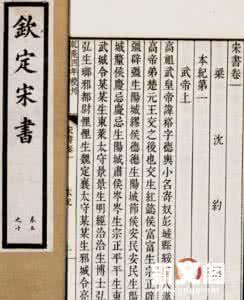 宋書卷一
梁 沈 約
本紀第一
武帝上
高祖武皇帝諱裕字德輿小名寄奴彭城縣綏
高帝弟楚元王交之後也交生紅懿侯富富生宗
彊辟彊生陽城繆侯德德生陽城節侯安民安民生
城釐侯慶忌慶忌生陽城肅侯岑岑生宗正平平生東
武城令某某生東萊太守景景生明經洽洽生博士
弘生琅邪都尉悝悝生魏定襄太守某某生邪城令亮
乾隆四年校刊
宋書卷一
本紀
欽定宋書
卷五
之十